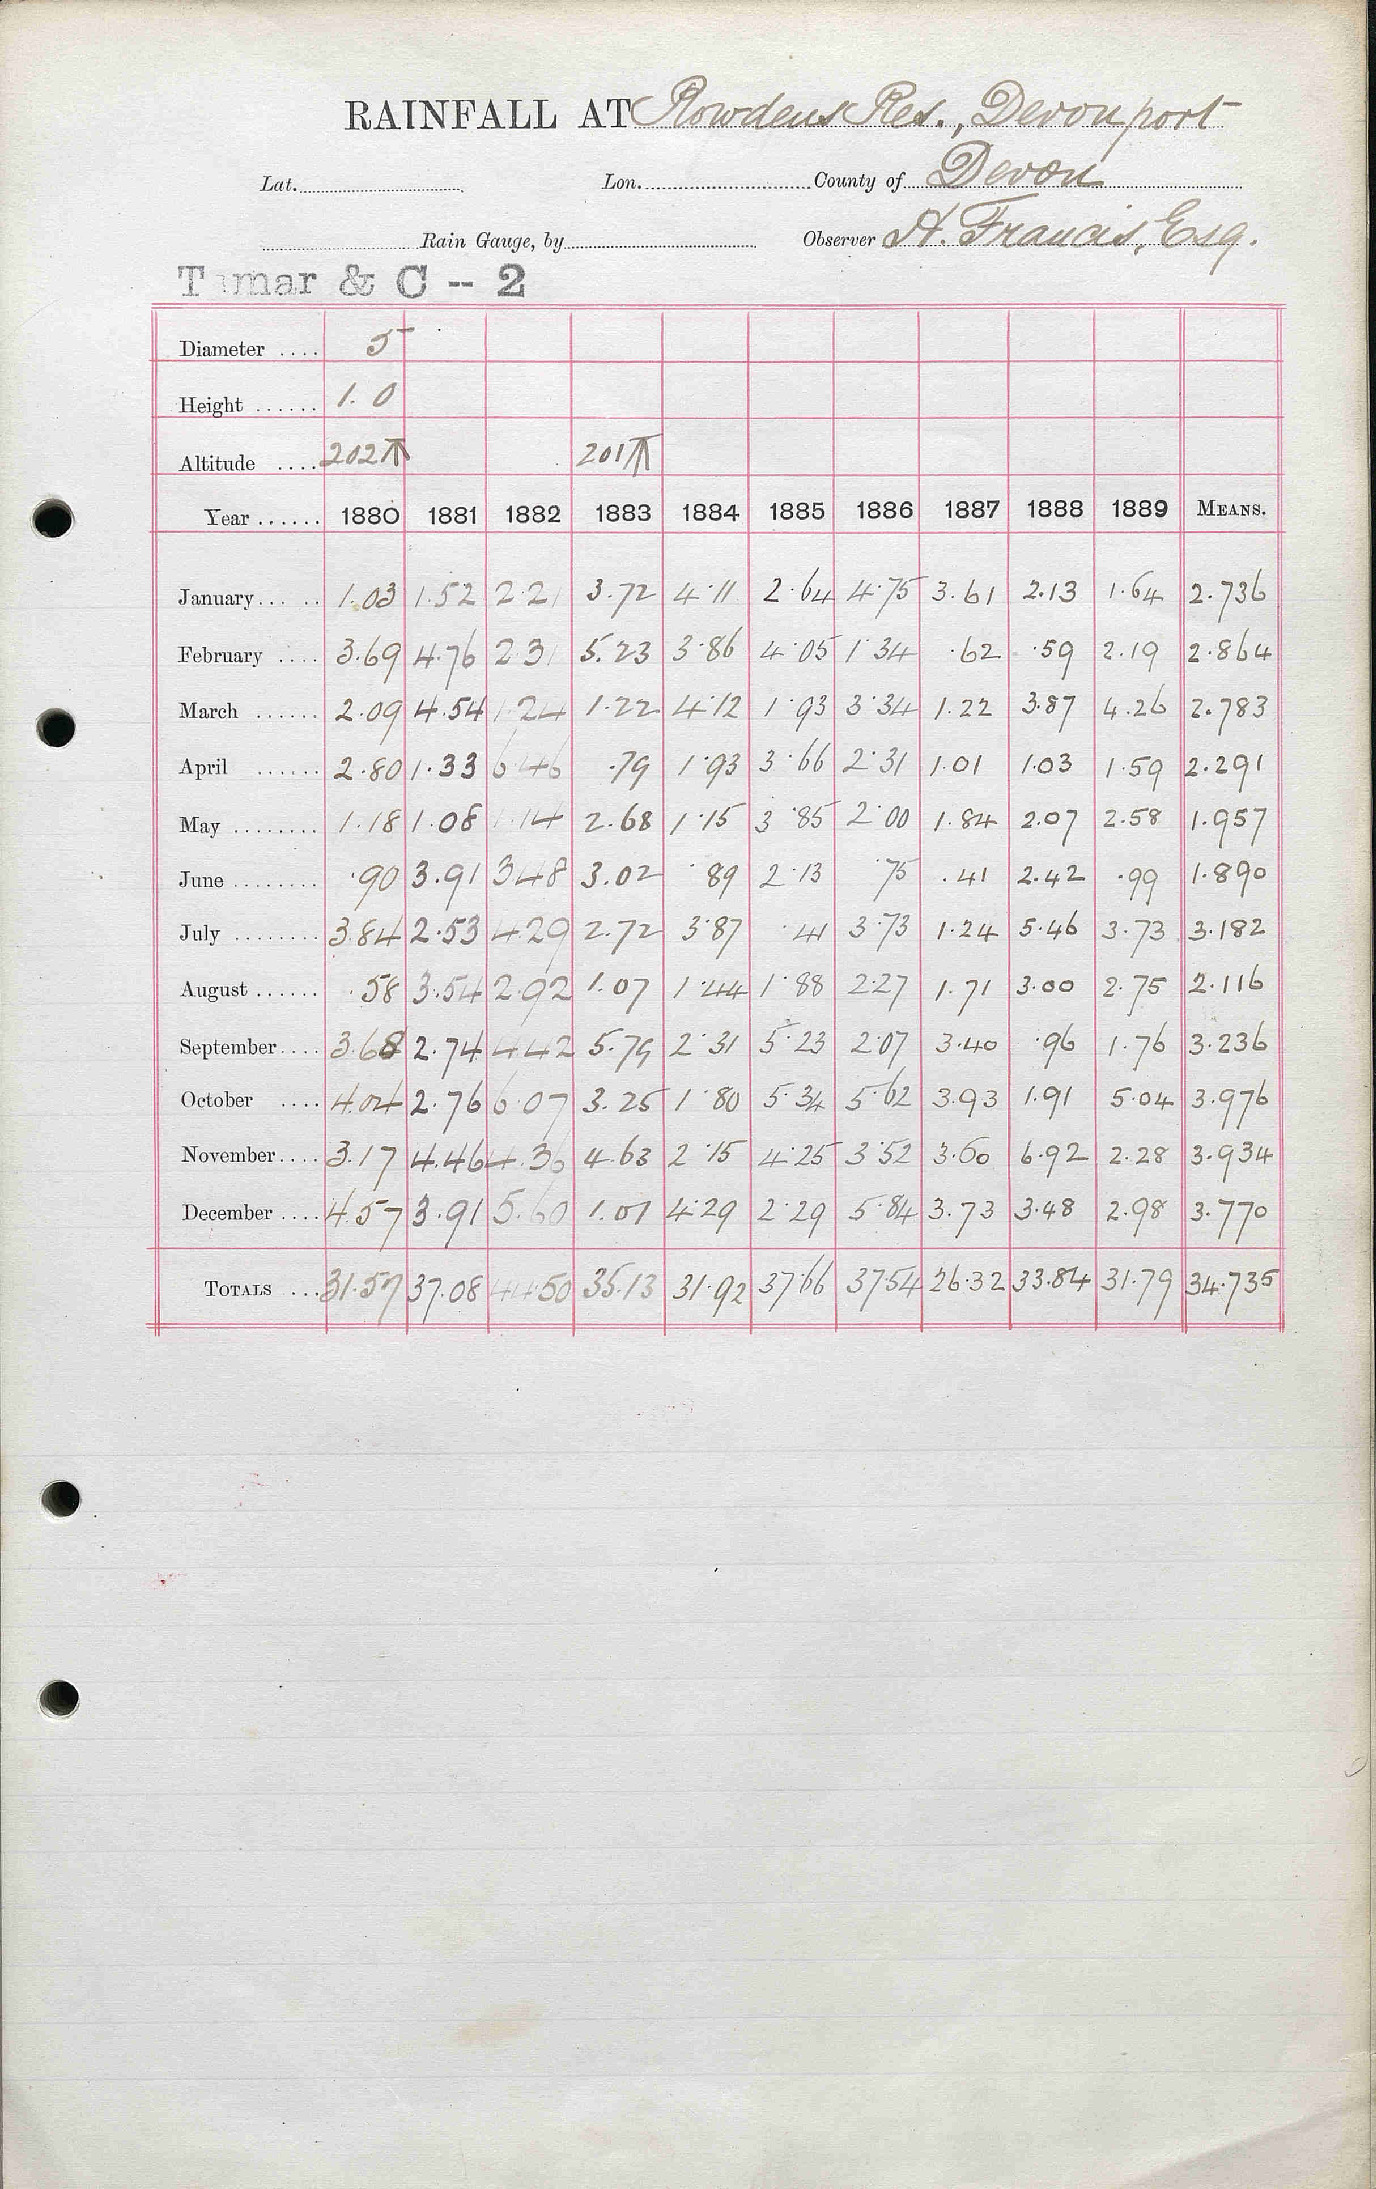 RAINFALL AT Rowdens Res., Devonport
Lat. Lon. County of Devon
Rain Gauge, by Observer H. Francis, Esq.
Tamar & C -- 2
Diameter .... 5
Height ...... 1.0
Altitude .... 202↑ 201↑
Year ...... 1880 1881 1882 1883 1884 1885 1886 1887 1888 1889 MEANS.
January ..... 1.03 1.52 2.21 3.72 4.11 2.64 4.75 3.61 2.13 1.64 2.736
February .... 3.69 4.76 2.31 5.23 3.86 4.05 1.34 .62 .59 2.19 2.864
March ...... 2.09 4.54 1.24 1.22 4.12 1.93 3.34 1.22 3.87 4.26 2.783
April ...... 2.80 1.33 6.46 .79 1.93 3.66 2.31 1.01 1.03 1.59 2.291
May ........ 1.18 1.08 1.14 2.68 1.15 3.85 2.00 1.84 2.07 2.58 1.957
June ........ .90 3.91 3.48 3.02 .89 2.13 .75 .41 2.42 .99 1.890
July ........ 3.84 2.53 4.29 2.72 3.87 .41 3.73 1.24 5.46 3.73 3.182
August ...... .58 3.54 2.92 1.07 1.44 1.88 2.27 1.71 3.00 2.75 2.116
September .... 3.68 2.74 4.42 5.79 2.31 5.23 2.07 3.40 .96 1.76 3.236
October .... 4.04 2.76 6.07 3.25 1.80 5.34 5.62 3.93 1.91 5.04 3.976
November .... 3.17 4.46 4.36 4.63 2.15 4.25 3.52 3.60 6.92 2.28 3.934
December .... 4.57 3.91 5.60 1.01 4.29 2.29 5.84 3.73 3.48 2.98 3.770
TOTALS ... 31.57 37.08 44.50 35.13 31.92 37.66 37.54 26.32 33.84 31.79 34.735